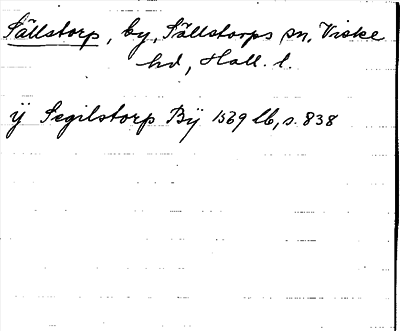 Sällstorp, by, Sällstorps sn, Viske
hd, Hall. l.
ÿ Segilstorp Bÿ 1569 lb, s. 838